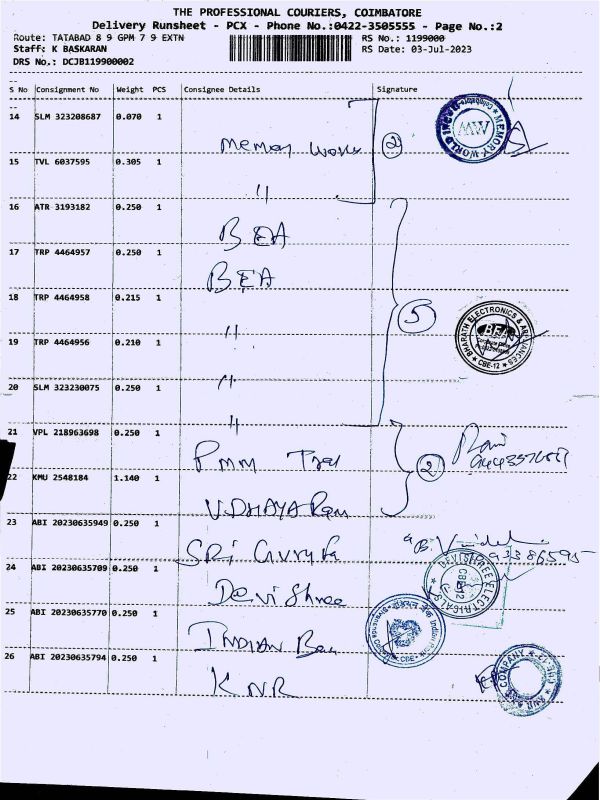 THE PROFESSIONAL COURIERS, COIMBATORE
Delivery Runsheet - PCX - Phone No.:0422-3505555 - Page No.:2
Route: TATABAD 8 9 GPM 7 9 EXTN RS No.: 1199000
Staff: K BASKARAN RS Date: 03-Jul-2023
DRS No.: DCJB119900002
S No Consignment No Weight PCS Consignee Details Signature
14 SLM 323208687 0.070 1
Memory World 2
MEMORY WORLD INC Coimbatore MW
15 TVL 6037595 0.305 1
"
16 ATR 3193182 0.250 1
BEA
17 TRP 4464957 0.250 1
BEA
18 TRP 4464958 0.215 1
" 5
BHARATH ELECTRONICS & APPLIANCES BEA CBE-12
19 TRP 4464956 0.210 1
"
20 SLM 323230075 0.250 1
"
21 VPL 218963698 0.250 1
PMM 2
22 KMU 2548184 1.140 1
UDHAYA Ram
23 ABI 20230635949 0.250 1
SRi Guru
24 ABI 20230635709 0.250 1
Devi Shree
DEVISHREE ELECTRICALS CBE-12
25 ABI 20230635770 0.250 1
INDIAN Ban
CBE
26 ABI 20230635794 0.250 1
KNR
COMPANY CBE-12